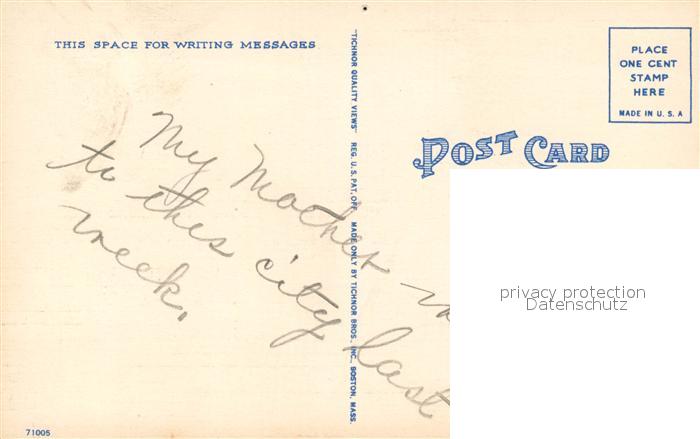 THIS SPACE FOR WRITING MESSAGES
PLACE
ONE CENT
STAMP
HERE
MADE IN U. S. A
POST CARD
"TICHNOR QUALITY VIEWS" REG. U. S. PAT. OFF. MADE ONLY BY TICHNOR BROS., INC., BOSTON, MASS.
My Mother
to this city last
week.
privacy protection
Datenschutz
71005